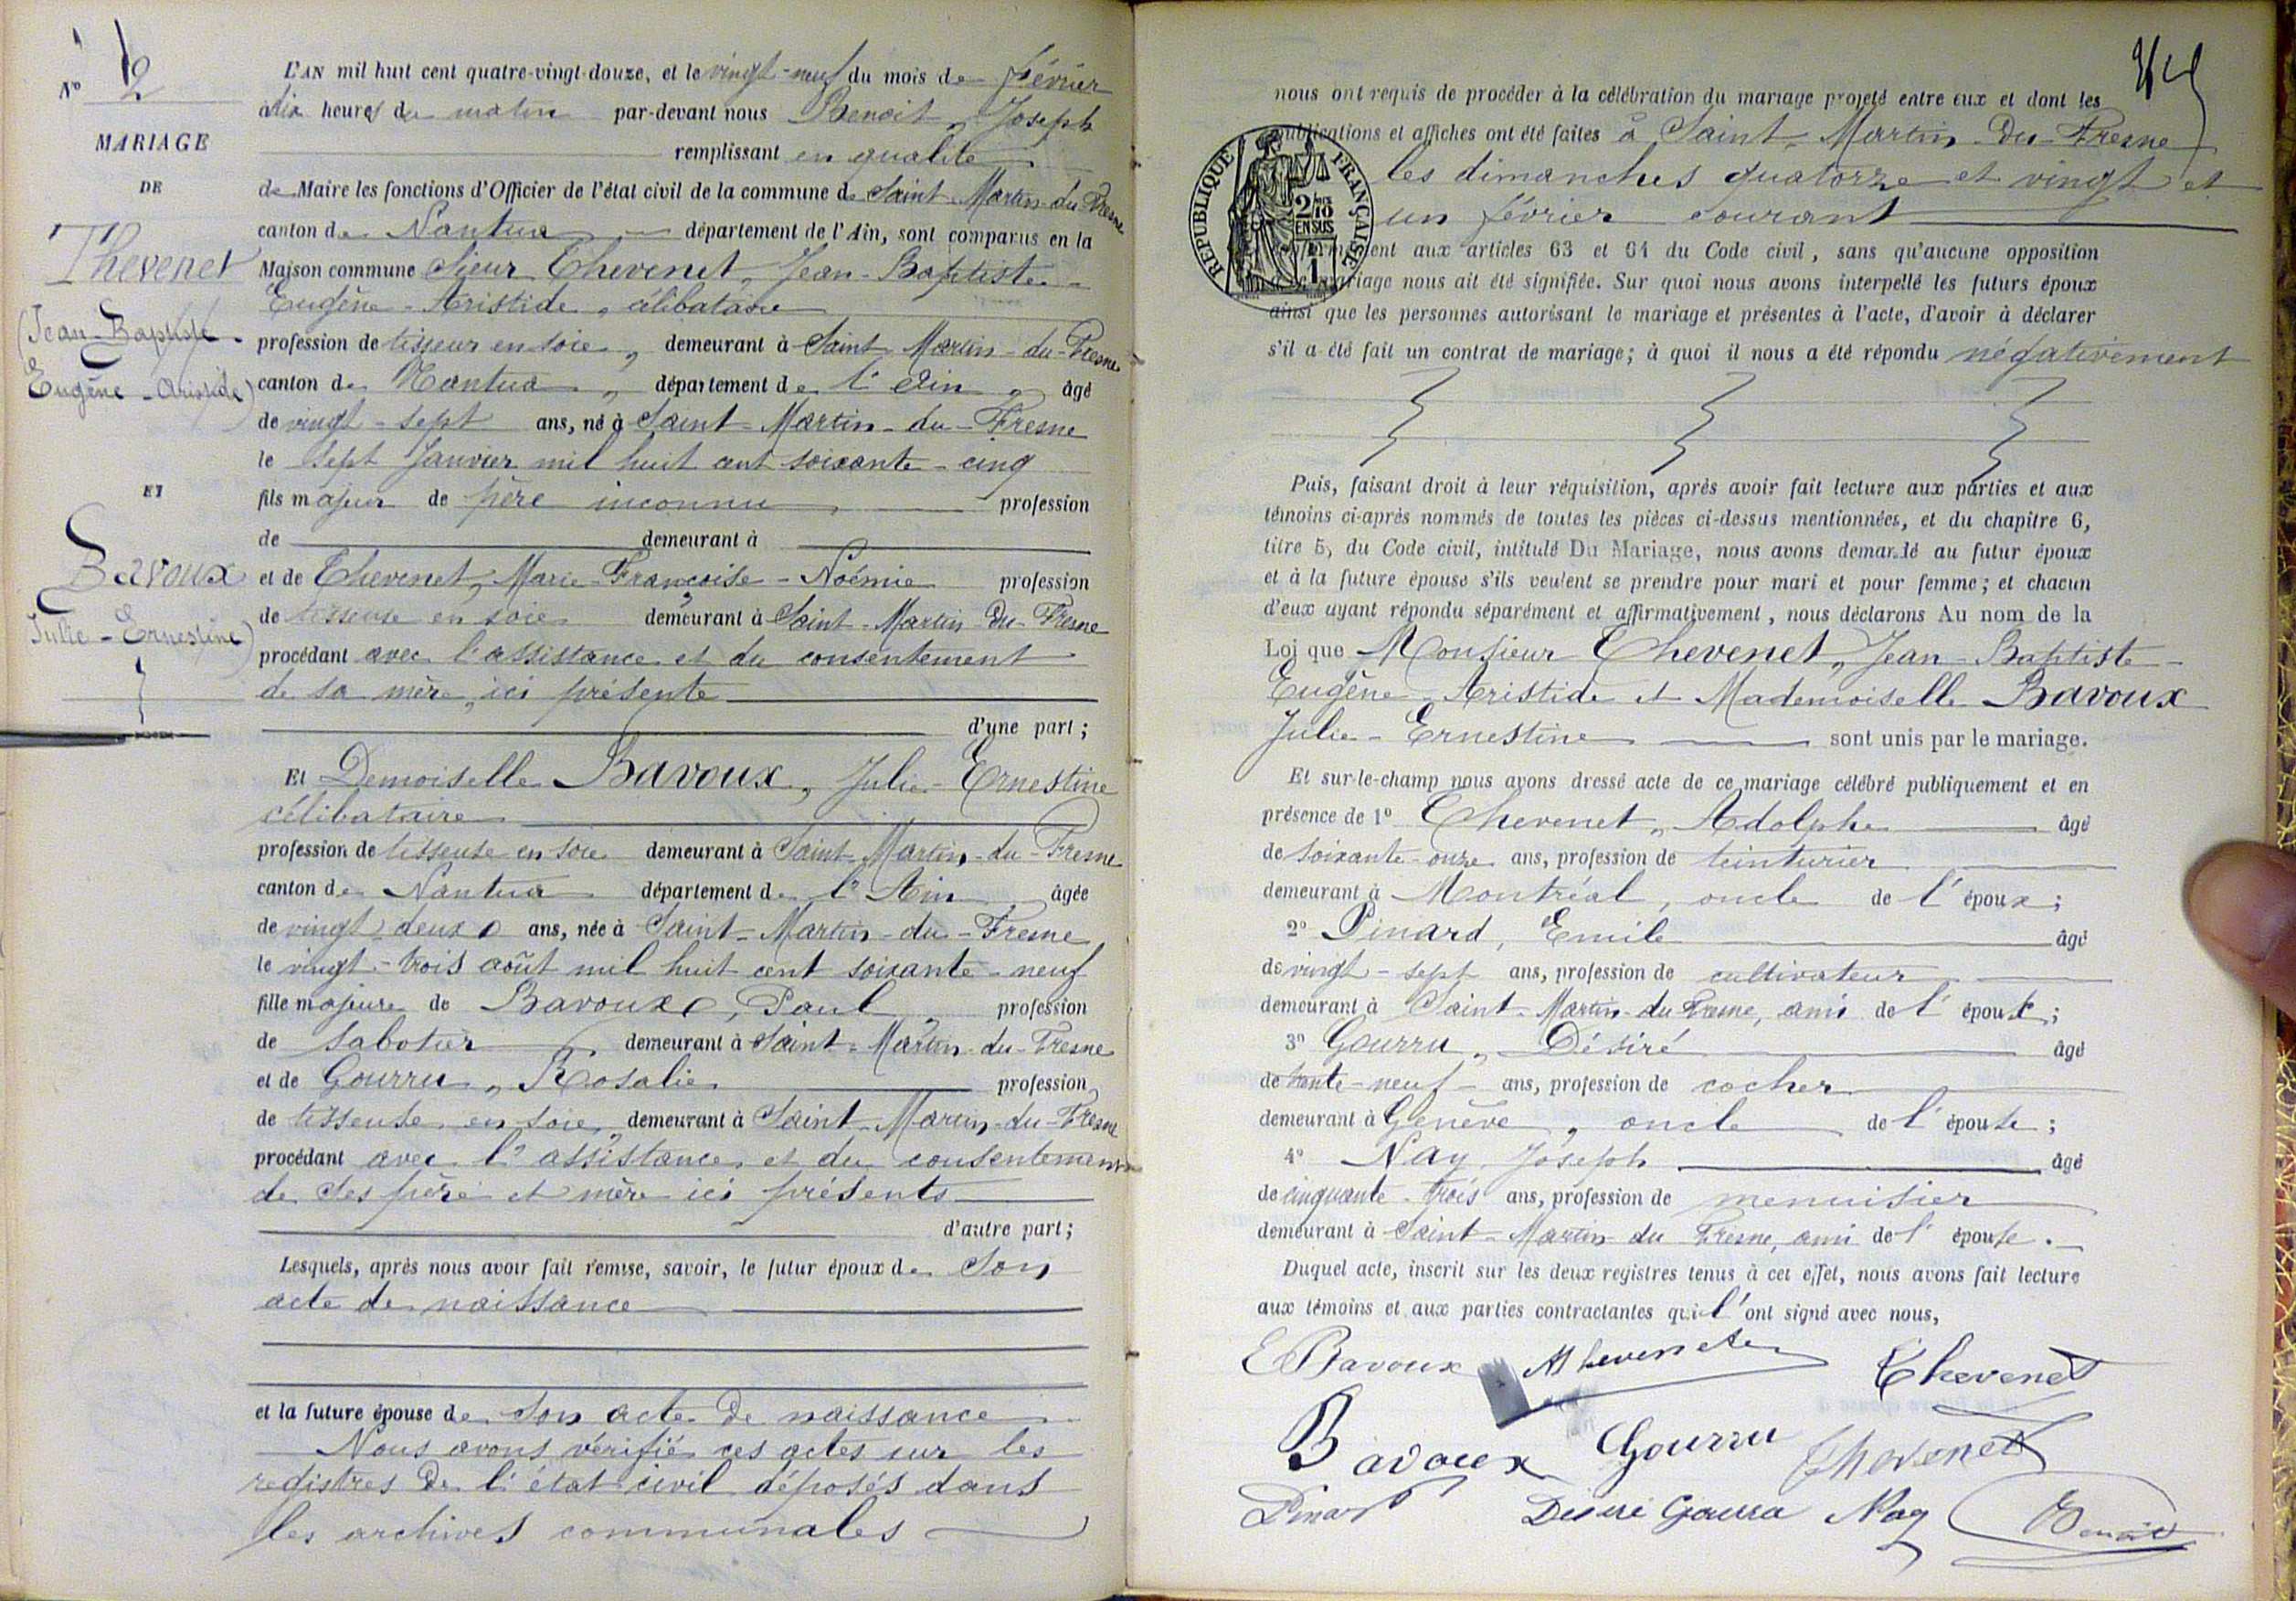 N° 2
MARIAGE
DE
Thevenet
(Jean-Baptiste-
Eugène-Aristide)
ET
Bavoux
Julie-Ernestine)
L'AN mil huit cent quatre-vingt-douze, et le vingt-neuf du mois de février
à dix heures du matin par-devant nous Benoit, Joseph
remplissant en qualité
de Maire les fonctions d'Officier de l'état civil de la commune de Saint-Martin-du-Fresne
canton de Nantua département de l'Ain, sont comparus en la
Maison commune Sieur Thevenet, Jean-Baptiste-
Eugène-Aristide, célibataire
profession de tisseur en soie, demeurant à Saint-Martin-du-Fresne
canton de Nantua, département de l'Ain, âgé
de vingt-sept ans, né à Saint-Martin-du-Fresne
le sept Janvier mil huit cent soixante-cinq
fils majeur de père inconnu profession
de demeurant à
et de Thevenet, Marie-Françoise-Noémie profession
de tisseuse en soie, demeurant à Saint-Martin-du-Fresne
procédant avec l'assistance et du consentement
de sa mère, ici présente
d'une part;
Et Demoiselle Bavoux, Julie-Ernestine
célibataire
profession de tisseuse en soie demeurant à Saint-Martin-du-Fresne
canton de Nantua département de l'Ain âgée
de vingt-deux ans, née à Saint-Martin-du-Fresne
le vingt-trois août mil huit cent soixante-neuf
fille majeure de Bavoux, Paul, profession
de sabotier demeurant à Saint-Martin-du-Fresne
et de Gourru, Rosalie profession
de tisseuse en soie, demeurant à Saint-Martin-du-Fresne
procédant avec l'assistance et du consentement
de ses père et mère ici présents
d'autre part;
Lesquels, après nous avoir fait remise, savoir, le futur époux de son
acte de naissance
et la future épouse de son acte de naissance
Nous avons vérifié ces actes sur les
registres de l'état civil déposés dans
les archives communales
nous ont requis de procéder à la célébration du mariage projeté entre eux et dont les
publications et affiches ont été faites à Saint-Martin-du-Fresne
les dimanches quatorze et vingt et
un février courant
RÉPUBLIQUE FRANÇAISE
2/10
EN SUS
aux articles 63 et 64 du Code civil, sans qu'aucune opposition
mariage nous ait été signifiée. Sur quoi nous avons interpellé les futurs époux
ainsi que les personnes autorisant le mariage et présentes à l'acte, d'avoir à déclarer
s'il a été fait un contrat de mariage; à quoi il nous a été répondu négativement
Puis, faisant droit à leur réquisition, après avoir fait lecture aux parties et aux
témoins ci-après nommés de toutes les pièces ci-dessus mentionnées, et du chapitre 6,
titre 5, du Code civil, intitulé Du Mariage, nous avons demandé au futur époux
et à la future épouse s'ils veulent se prendre pour mari et pour femme; et chacun
d'eux ayant répondu séparément et affirmativement, nous déclarons Au nom de la
Loi que Monsieur Thevenet, Jean-Baptiste-
Eugène-Aristide et Mademoiselle Bavoux
Julie-Ernestine sont unis par le mariage.
Et sur-le-champ nous avons dressé acte de ce mariage célébré publiquement et en
présence de 1° Thevenet, Adolphe âgé
de soixante-onze ans, profession de teinturier
demeurant à Montréal, oncle de l'époux;
2° Pinard, Emile âgé
de vingt-sept ans, profession de cultivateur
demeurant à Saint-Martin-du-Fresne, ami de l'époux;
3° Gourru, Désiré âgé
de trente-neuf ans, profession de cocher
demeurant à Genève, oncle de l'épouse;
4° Nay Joseph âgé
de cinquante-trois ans, profession de menuisier
demeurant à Saint-Martin-du-Fresne, ami de l'épouse.
Duquel acte, inscrit sur les deux registres tenus à cet effet, nous avons fait lecture
aux témoins et aux parties contractantes qui l'ont signé avec nous,
E Bavoux Thevenet
Bavoux Gourru Thevenet
Pinard Désiré Gourru Nay Benoit